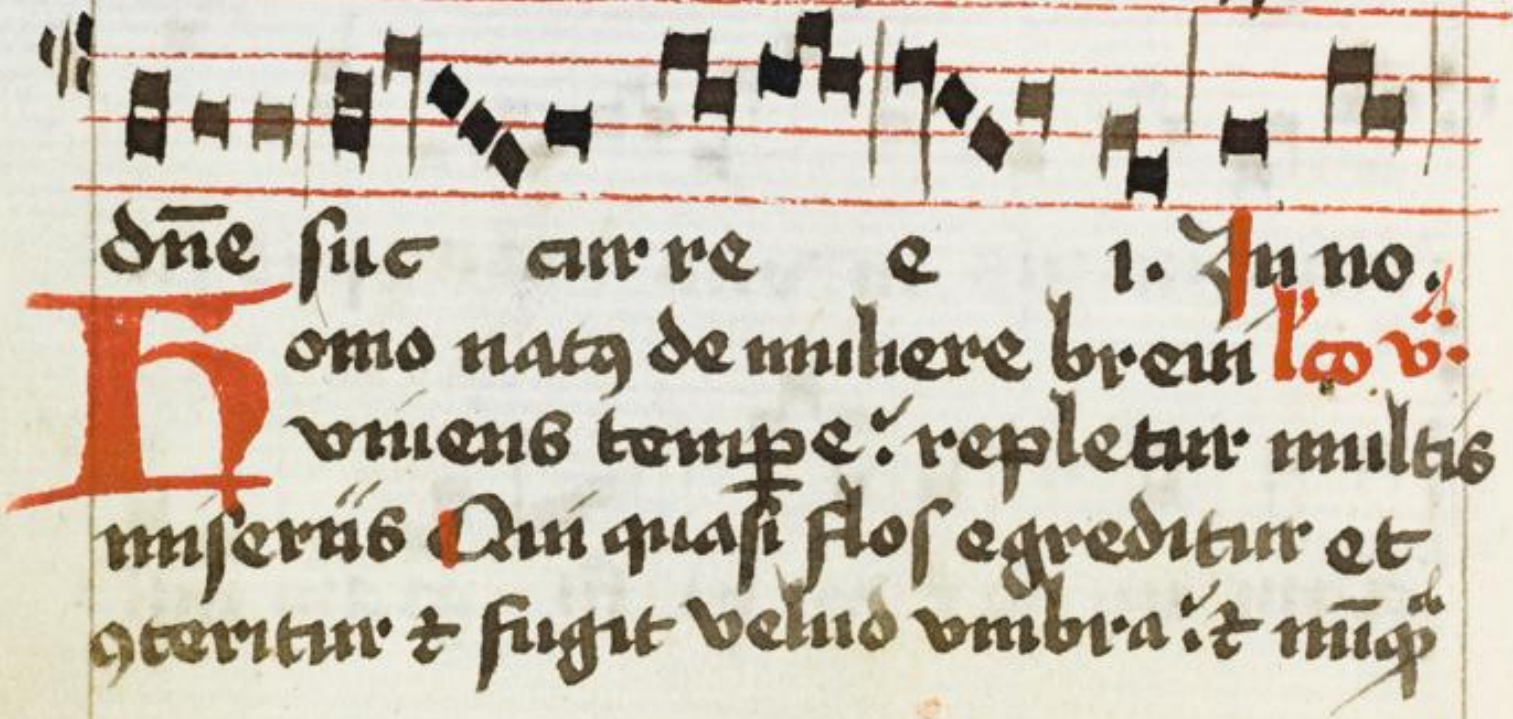 dn̄e suc cur re e i. In no.
Homo natꝯ de muliere breui lc̄o v.ᵃ
viuens temp̱e: repletur multis
miseriis Qui quasi flos egreditur et
ꝯteritur ⁊ fugit velud vmbra: ⁊ nūqᷓ